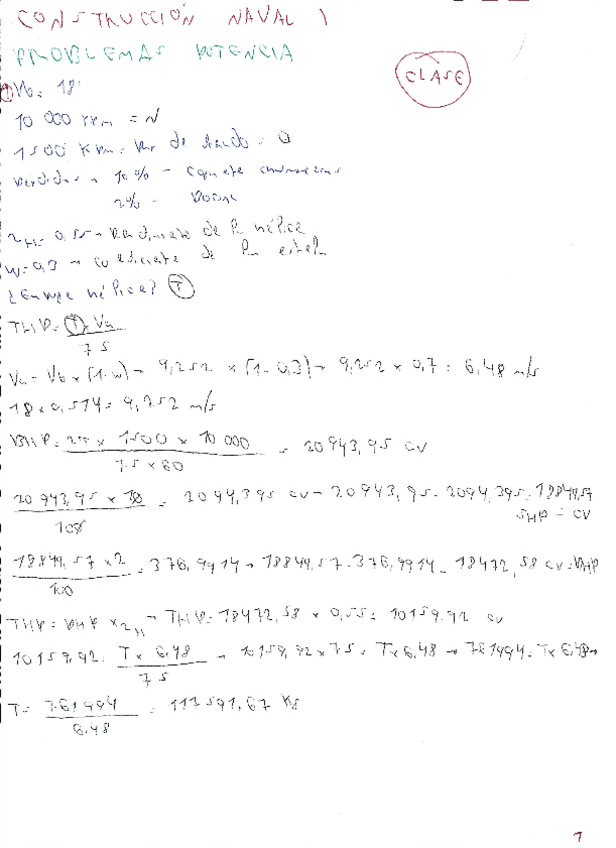 CONSTRUCCIÓN NAVAL 1
PROBLEMAS POTENCIA
CLASE
① Vb = 18'
10 000 rpm = N
1500 Kgm = Par de = Q
Perdidas → 10% - cojinete
2% - Bocina
ηH = 0,55 → Rendimiento de la hélice
w = 0,3 → coeficiente de la estela
¿Empuje hélice? Ⓣ
THP = T × Va / 75
Va = Vb × (1-w) → 9,252 × (1-0,3) → 9,252 × 0,7 = 6,48 m/s
18 × 0,514 = 9,252 m/s
BHP = 2π × 1500 × 10 000 / 75 × 60 = 20943,95 CV
20943,95 × 10 / 100 = 2094,395 CV → 20943,95 - 2094,395 = 18849,57
SHP = CV
18849,57 × 2 / 100 = 376,9914 → 18849,57 - 376,9914 = 18472,58 CV = DHP
THP = DHP × ηH → THP = 18472,58 × 0,55 = 10159,92 CV
10159,92 = T × 6,48 / 75 → 10159,92 × 75 = T × 6,48 → 761994 = T × 6,48 →
T = 761994 / 6,48 = 117591,67 Kg
1